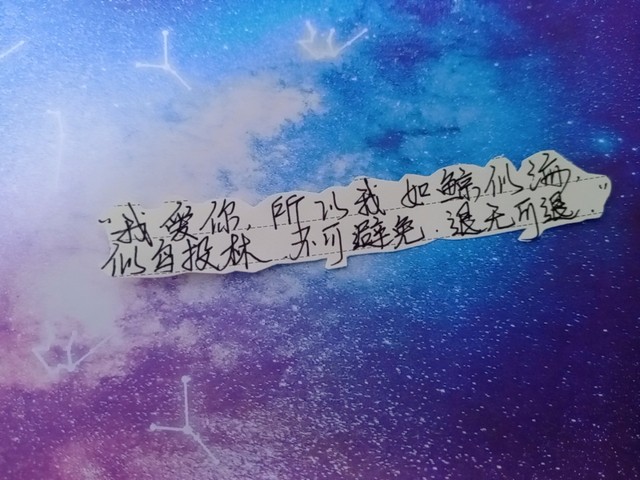 “我爱你，所以我如鲸似海，
似自投林 不可避免．退无可退”